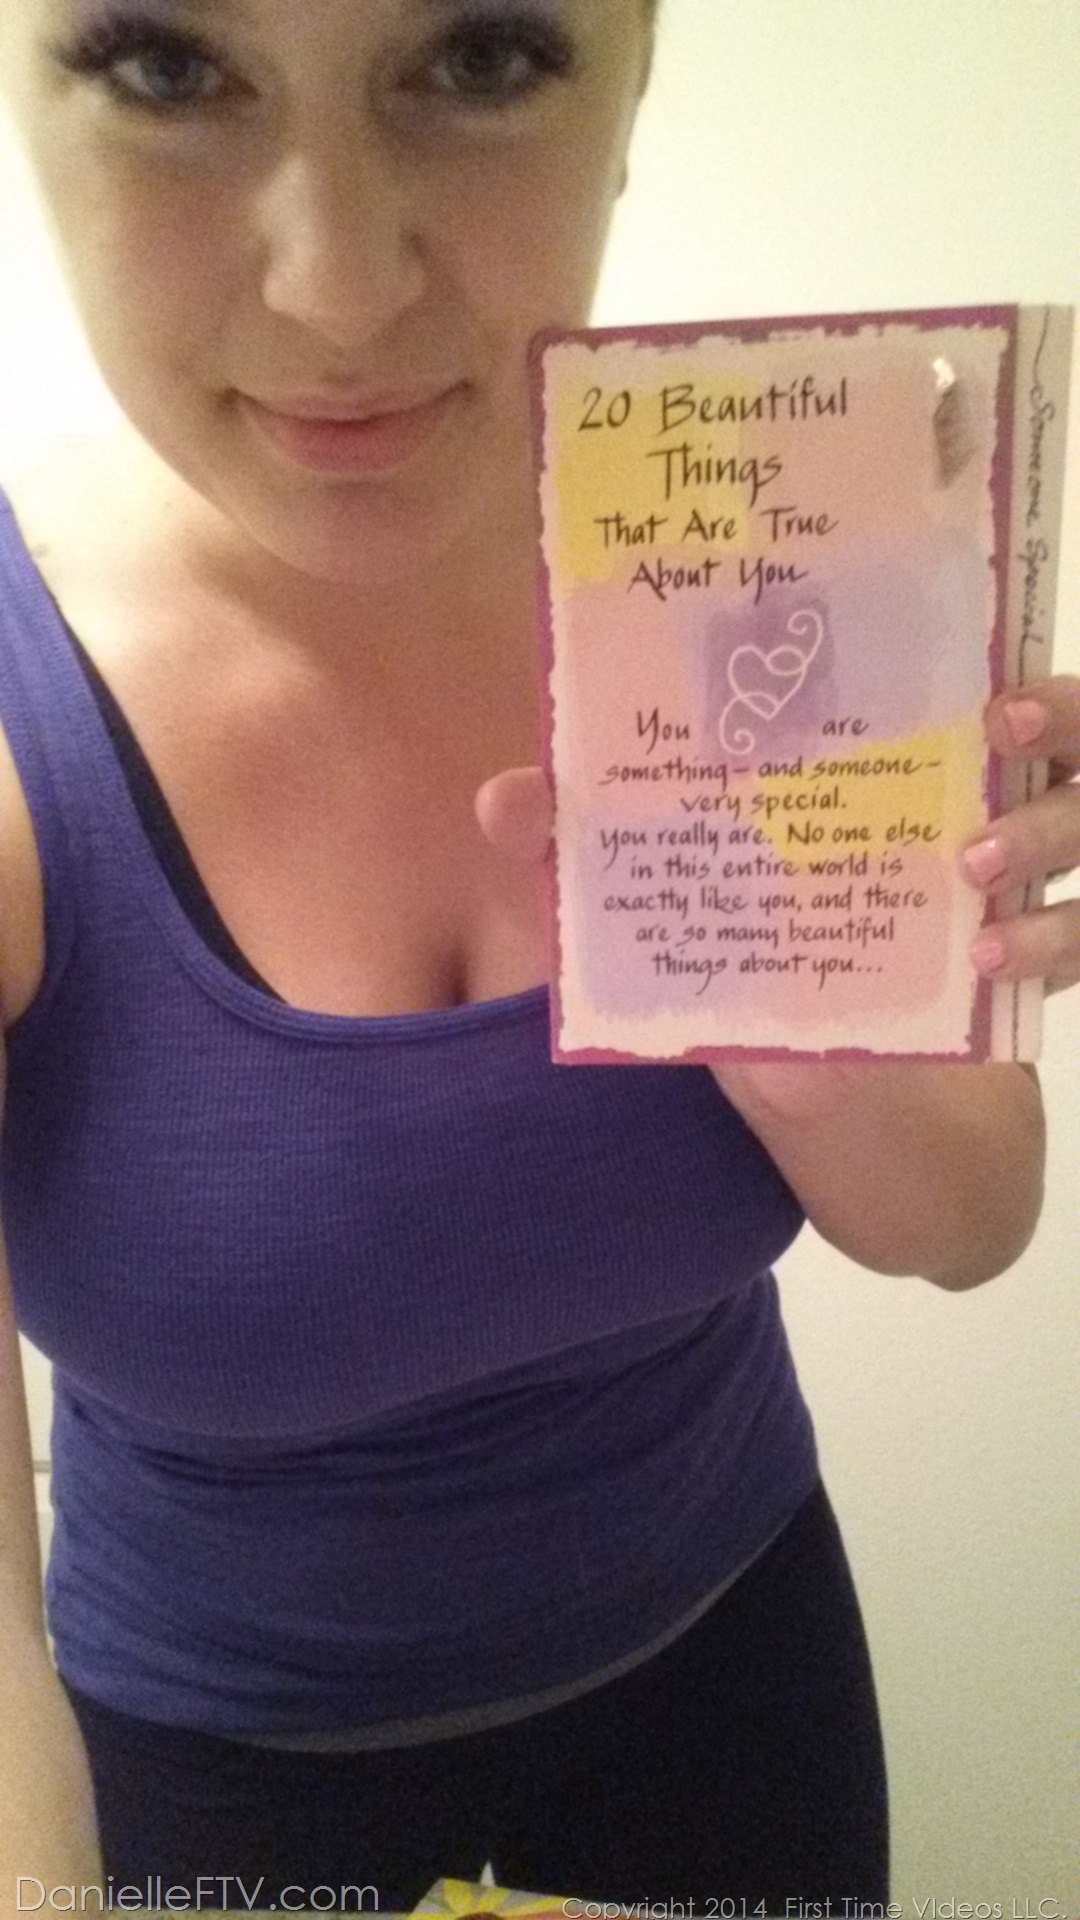 20 Beautiful
Things
That Are True
About You
You are
something – and someone –
very special.
You really are. No one else
in this entire world is
exactly like you, and there
are so many beautiful
things about you...
Someone Special
DanielleFTV.com
Copyright 2014 First Time Videos LLC.